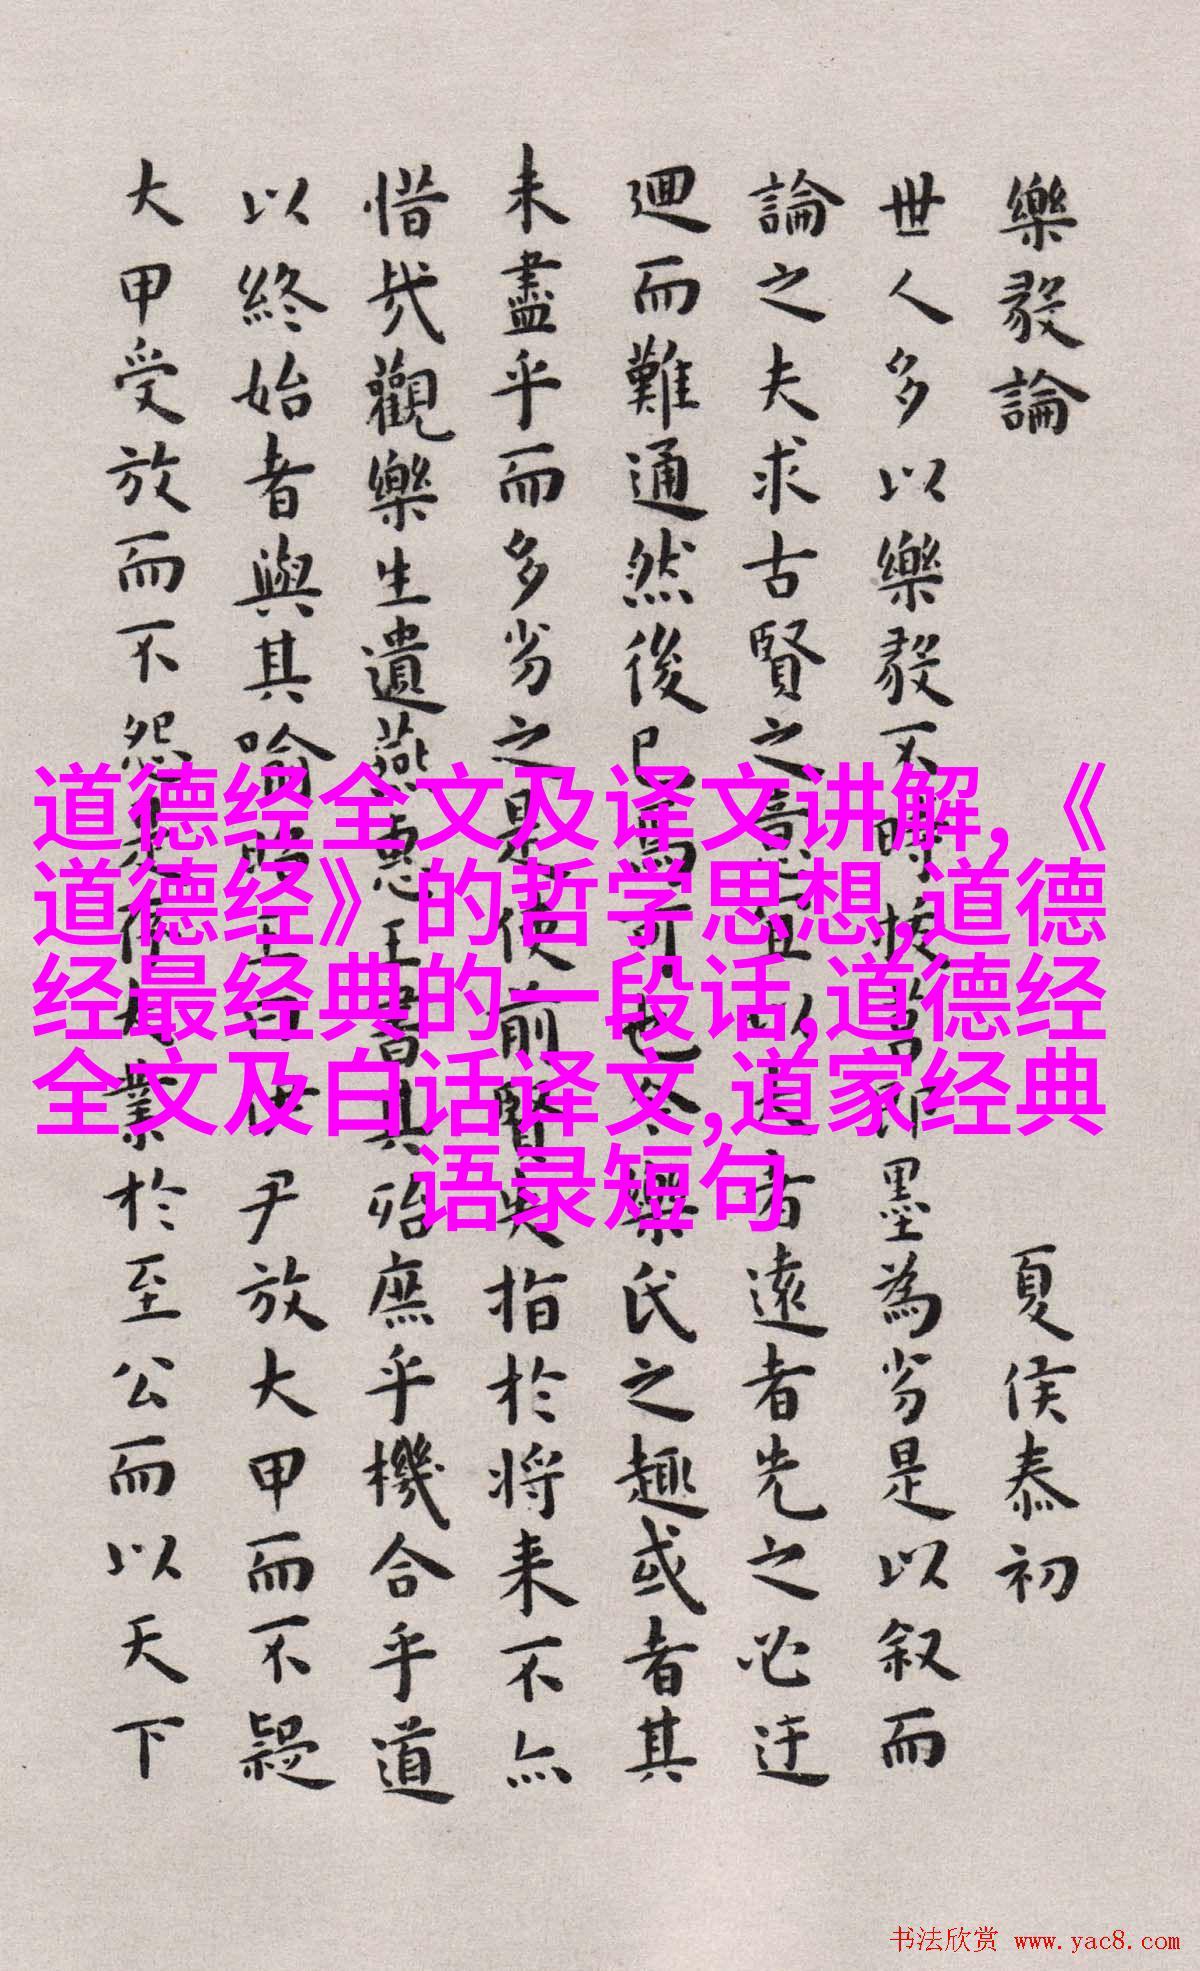 樂毅論 夏侯泰初
世人多以樂毅不時拔莒即墨為劣是以叙而
論之夫求古賢之意宜以大者遠者先之必迂
迴而難通然後已焉可也今樂氏之趣或者其
未盡乎而多劣之是使前賢失指於將来不亦
惜哉觀樂生遺燕惠王書其殆庶乎機合乎道
以終始者與其喻昭王曰伊尹放大甲而不疑
大甲受放而不怨是存大業於至公而以天下
道德经全文及译文讲解,《
道德经》的哲学思想,道德
经最经典的一段话,道德经
全文及白话译文,道家经典
语录短句
书法欣赏 www.yac8.com